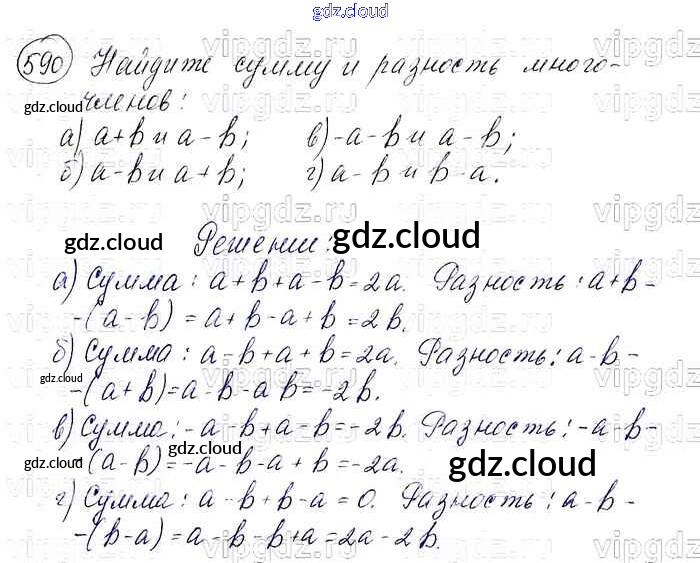 gdz.cloud
590 Найдите сумму и разность много-
членов:
а) a+b и a-b; в) -a-b и a-b;
б) a-b и a+b; г) a-b и b-a.
Решении:
а) Сумма: a+b+a-b=2a. Разность: a+b-
-(a-b) = a+b-a+b=2b.
б) Сумма: a-b+a+b=2a. Разность: a-b-
-(a+b)=a-b-a b=-2b.
в) Сумма: -a-b+a-b=-2b. Разность: -a-b-
(a-b)=-a-b-a+b=-2a.
г) Сумма: a-b+b-a=0. Разность: a-b-
-(b-a)=a-b-b+a=2a-2b.
gdz.cloud
gdz.cloud
gdz.cloud
gdz.cloud
gdz.cloud
gdz.cloud
vipgdz